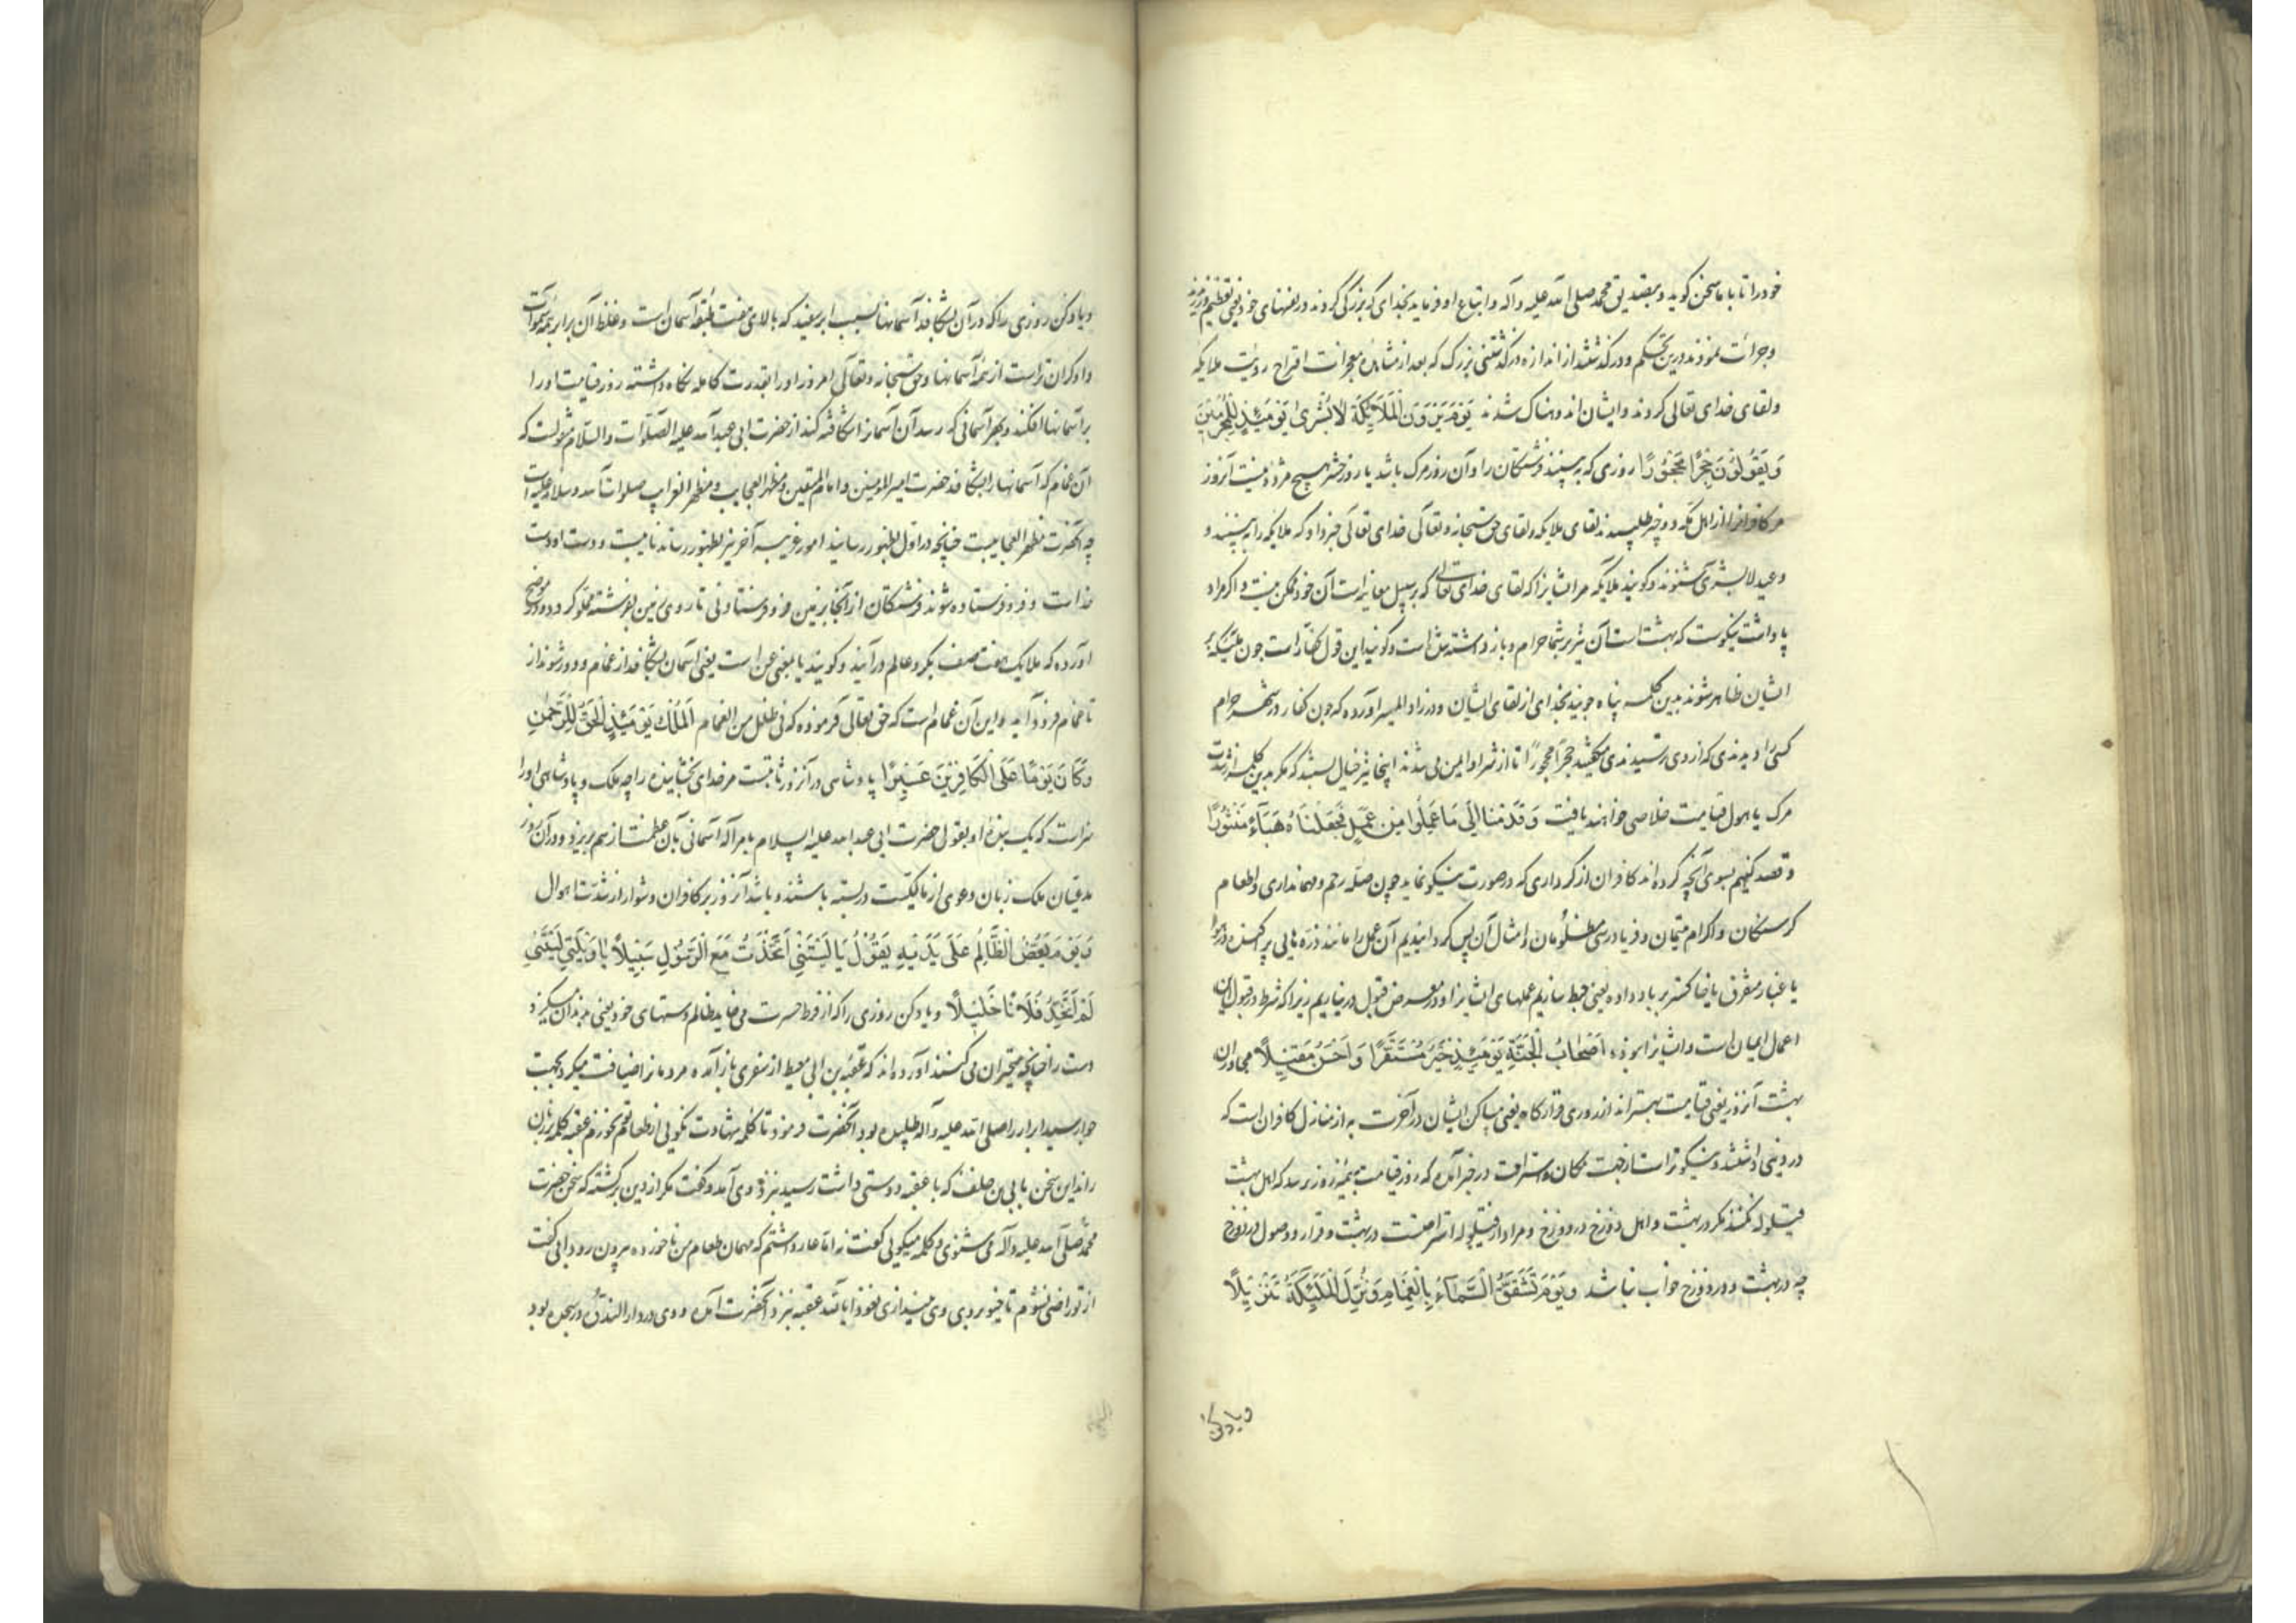 خود را تا با ما سخن گوید و بتصدیق محمد صلی الله علیه وآله و اتباع او فرماید بخدای که بزرگی کردند در نفسهای خود یعنی تعظیم ورزیدند
وجرائت نمودند درین تحکم و در گذشتند از اندازه در گذشتنی بزرگ که بعد از مشاهده معجزات اقتراح رویت ملایکه
ولقای خدای تعالی کردند وایشان اندوهناک شدند یَوْمَ یَرَوْنَ الْمَلَائِکَةَ لَا بُشْرَىٰ یَوْمَئِذٍ لِلْمُجْرِمِینَ
وَیَقُولُونَ حِجْرًا مَحْجُورًا روزی که به بینند فرشتگان را و آن روز مرک باشد یا روز حشر هیچ مژده نیست آنروز
مر کافرانرا از اهل مکه دو چیز طلبیدند لقای ملایکه ولقای حق سبحانه وتعالی خدای تعالی خبر داد که ملایکه را به بینند و
وعید لا بشری شنوند و کویند ملایکه مر ایشانرا که لقای خدای تعالی که بر سبیل معاینه است آن خود ممکن نیست و اکر مراد
پاداشت نیکوست که بهشت است آن نیز بر شما حرام و باز داشته شده است و کویند این قول کفار است چون ملئکه
ایشان ظاهر شوند بدین کلمه پناه جویند بخدای از لقای ایشان و در زاد المسیر آورده که چون کفار در شهر حرام
کسی را دیدندی که از وی ترسیدندی میکفتند حجرا محجورا تا از شر او ایمن می شدند اینجا نیز خیال بستند که مکر بدین کلمه از شدت
مرک یا هول قیامت خلاصی خواهند یافت وَقَدِمْنَا إِلَىٰ مَا عَمِلُوا مِنْ عَمَلٍ فَجَعَلْنَاهُ هَبَاءً مَنْثُورًا
و قصد کنیم بسوی آنچه کرده اند کافران از کرداری که در صورت نیکو نماید چون صله رحم و مهمانداری و اطعام
کرسنکان و اکرام یتیمان و فریادرسی مظلومان و امثال آن پس کردانیدیم آن عمل را مانند ذره هایی پراکنده در هوا
یا غبار متفرق یا خاکستر بر باد داده یعنی حبط سازیم عملهای ایشانرا و در معرض قبول در نیاریم زیرا که شرط در قبول این
اعمال ایمان است و ایشانرا نبوده أَصْحَابُ الْجَنَّةِ یَوْمَئِذٍ خَیْرٌ مُسْتَقَرًّا وَأَحْسَنُ مَقِیلًا مجاوران
بهشت آنروز یعنی قیامت بهتراند از روی قرارگاه یعنی مساکن ایشان در آخرت به از منازل کافران است که
در دنیی داشتند و نیکوتر است از جهت مکان استراحت در خبر آمده که روز قیامت به نیمروز نرسد که اهل بهشت
قیلوله کنند مکر در بهشت و اهل دوزخ در دوزخ و مراد از قیلوله استراحتست در بهشت و قرار و وصول در دوزخ
چه در بهشت و در دوزخ خواب نباشد وَیَوْمَ تَشَقَّقُ السَّمَاءُ بِالْغَمَامِ وَنُزِّلَ الْمَلَئِکَةُ تَنْزِیلًا
ویاد کن
ویاد کن روزی را که در آن بشکافد آسمانها بسبب ابر سفید که بالای هفت طبقه آسمان است و غلظ آن برابر همه سموات
و او کران تر است از همه آسمانها و حق سبحانه و تعالی امروز او را بقدرت کامله نکاه داشته روز قیامت او را
بر آسمانها افکند و بهر آسمانی که رسد آن آسمانرا شکافته کند از حضرت ابی عبد الله علیه الصلوات والسلام منقولست که
آن غمام که آسمانها را بشکافد حضرت امیر المومنین و امام المتقین و مظهر العجایب و مظهر الغرایب صلوات الله و سلامه علیه است
چه آنحضرت مظهر العجایبست چنانچه در اول بظهور رسانید امور غریبه آخر نیز بظهور رساند نایبست و دست او دست
خداست و فرو فرستاده شوند فرشتکان از آنجا بر زمین فرو فرستادنی تا روی زمین بفرشته مملو کردد و در موضح
آورده که ملایک هفت صف بکرد عالم درآیند و کویند با بمعنی عن است یعنی آسمان بشکافد از غمام و دور شوند از
تا غمام فرود آید و این آن غمام است که حق تعالی فرموده که فی ظلل من الغمام الْمُلْکُ یَوْمَئِذٍ الْحَقُّ لِلرَّحْمَٰنِ
وَکَانَ یَوْمًا عَلَى الْکَافِرِینَ عَسِیرًا پادشاهی در آنروز ثابتست مر خدای بخشاینده را چه ملک و پادشاهی او را
سزاست که یک بنده او بقول حضرت ابی عبد الله علیه السلام بامر اله آسمانی بآن عظمت از هم بریزد و در آن روز
مدعیان ملک زبان دعوی از مالکیت دربسته باشند و باشد آنروز بر کافران دشوار از شدت اهوال
وَیَوْمَ یَعَضُّ الظَّالِمُ عَلَىٰ یَدَیْهِ یَقُولُ یَا لَیْتَنِی اتَّخَذْتُ مَعَ الرَّسُولِ سَبِیلًا یَا وَیْلَتَىٰ لَیْتَنِی
لَمْ أَتَّخِذْ فُلَانًا خَلِیلًا ویاد کن روزی را که از فرط حسرت می خاید ظالم دستهای خود یعنی بدندان میکیزد
دست را چنانچه متحیران می کنند آورده اند که عقبه بن ابی معیط از سفری باز آمده مردمانرا ضیافت میکرد بجهت
جوار سید ابرار را صلی الله علیه وآله طلبیده بود آنحضرت فرمود تا کلمه شهادت نکویی از طعام تو نخورم عقبه کلمه بزبان
راند این سخن بابی بن خلف که با عقبه دوستی داشت رسید بنزد وی آمد و کفت مکر از دین برکشته که سخن حضرت
محمد صلی الله علیه وآله می شنوی و کلمه میکویی کفت نه اما عار داشتم که مهمان طعام من ناخورده بیرون رود ابی کفت
از تو راضی نشوم تا خیو بر روی وی نیندازی نعوذ بالله عقبه بنزد آنحضرت آمده و وی در دار الندوه در سجده بود